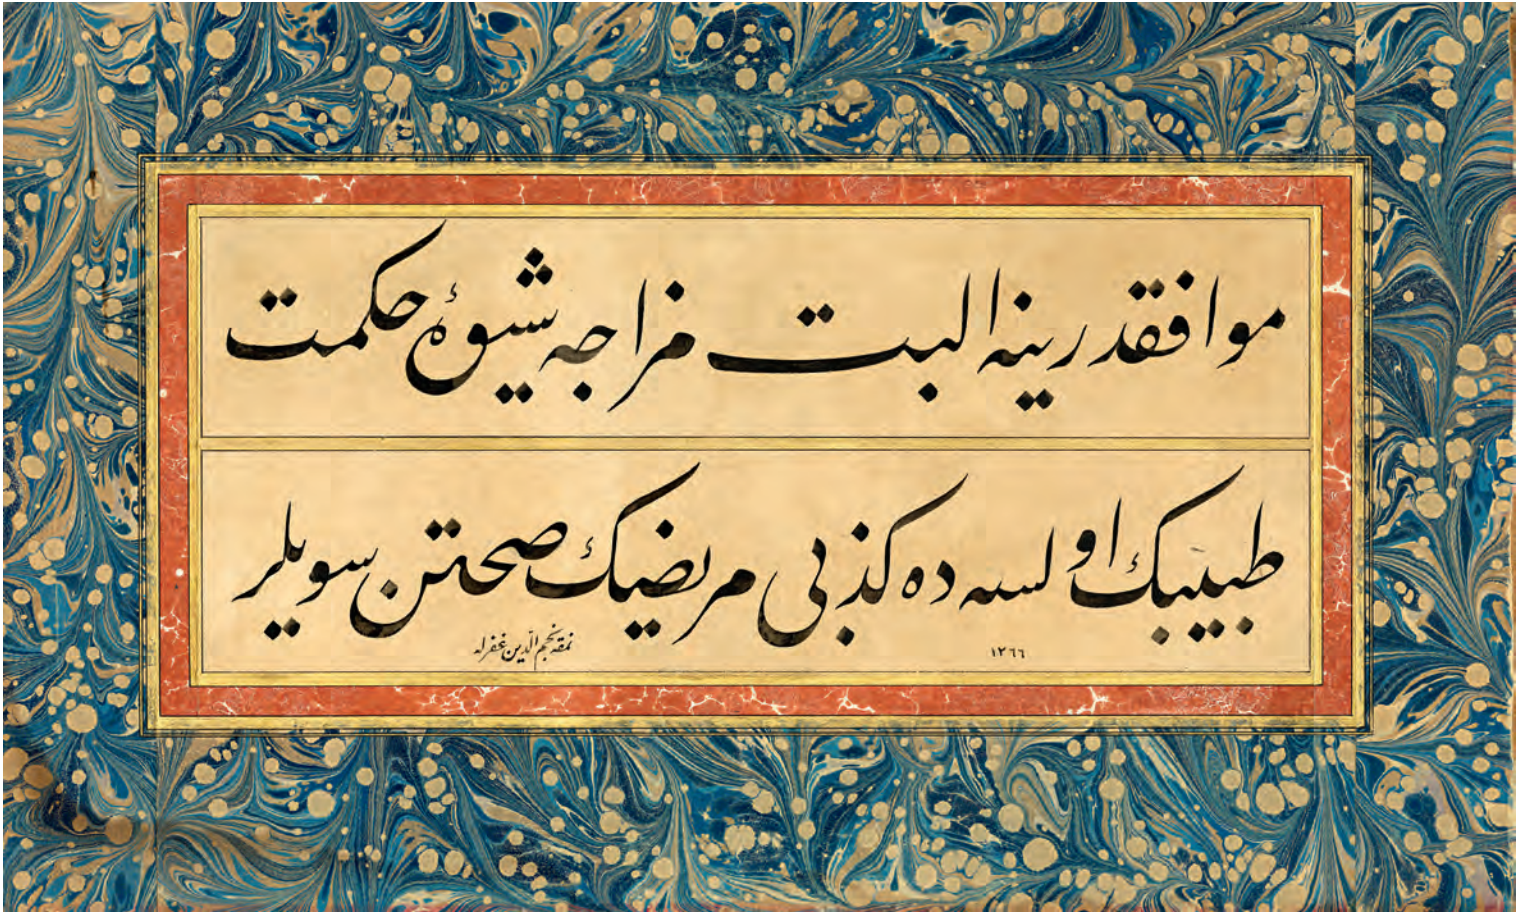 موافقدر ینه البت مزاجه شیوهٔ حکمت
طبیبك اولسه ده کذبی مریضك صحتن سویلر
نمقه نجم الدین غفرله
١٣٦٦